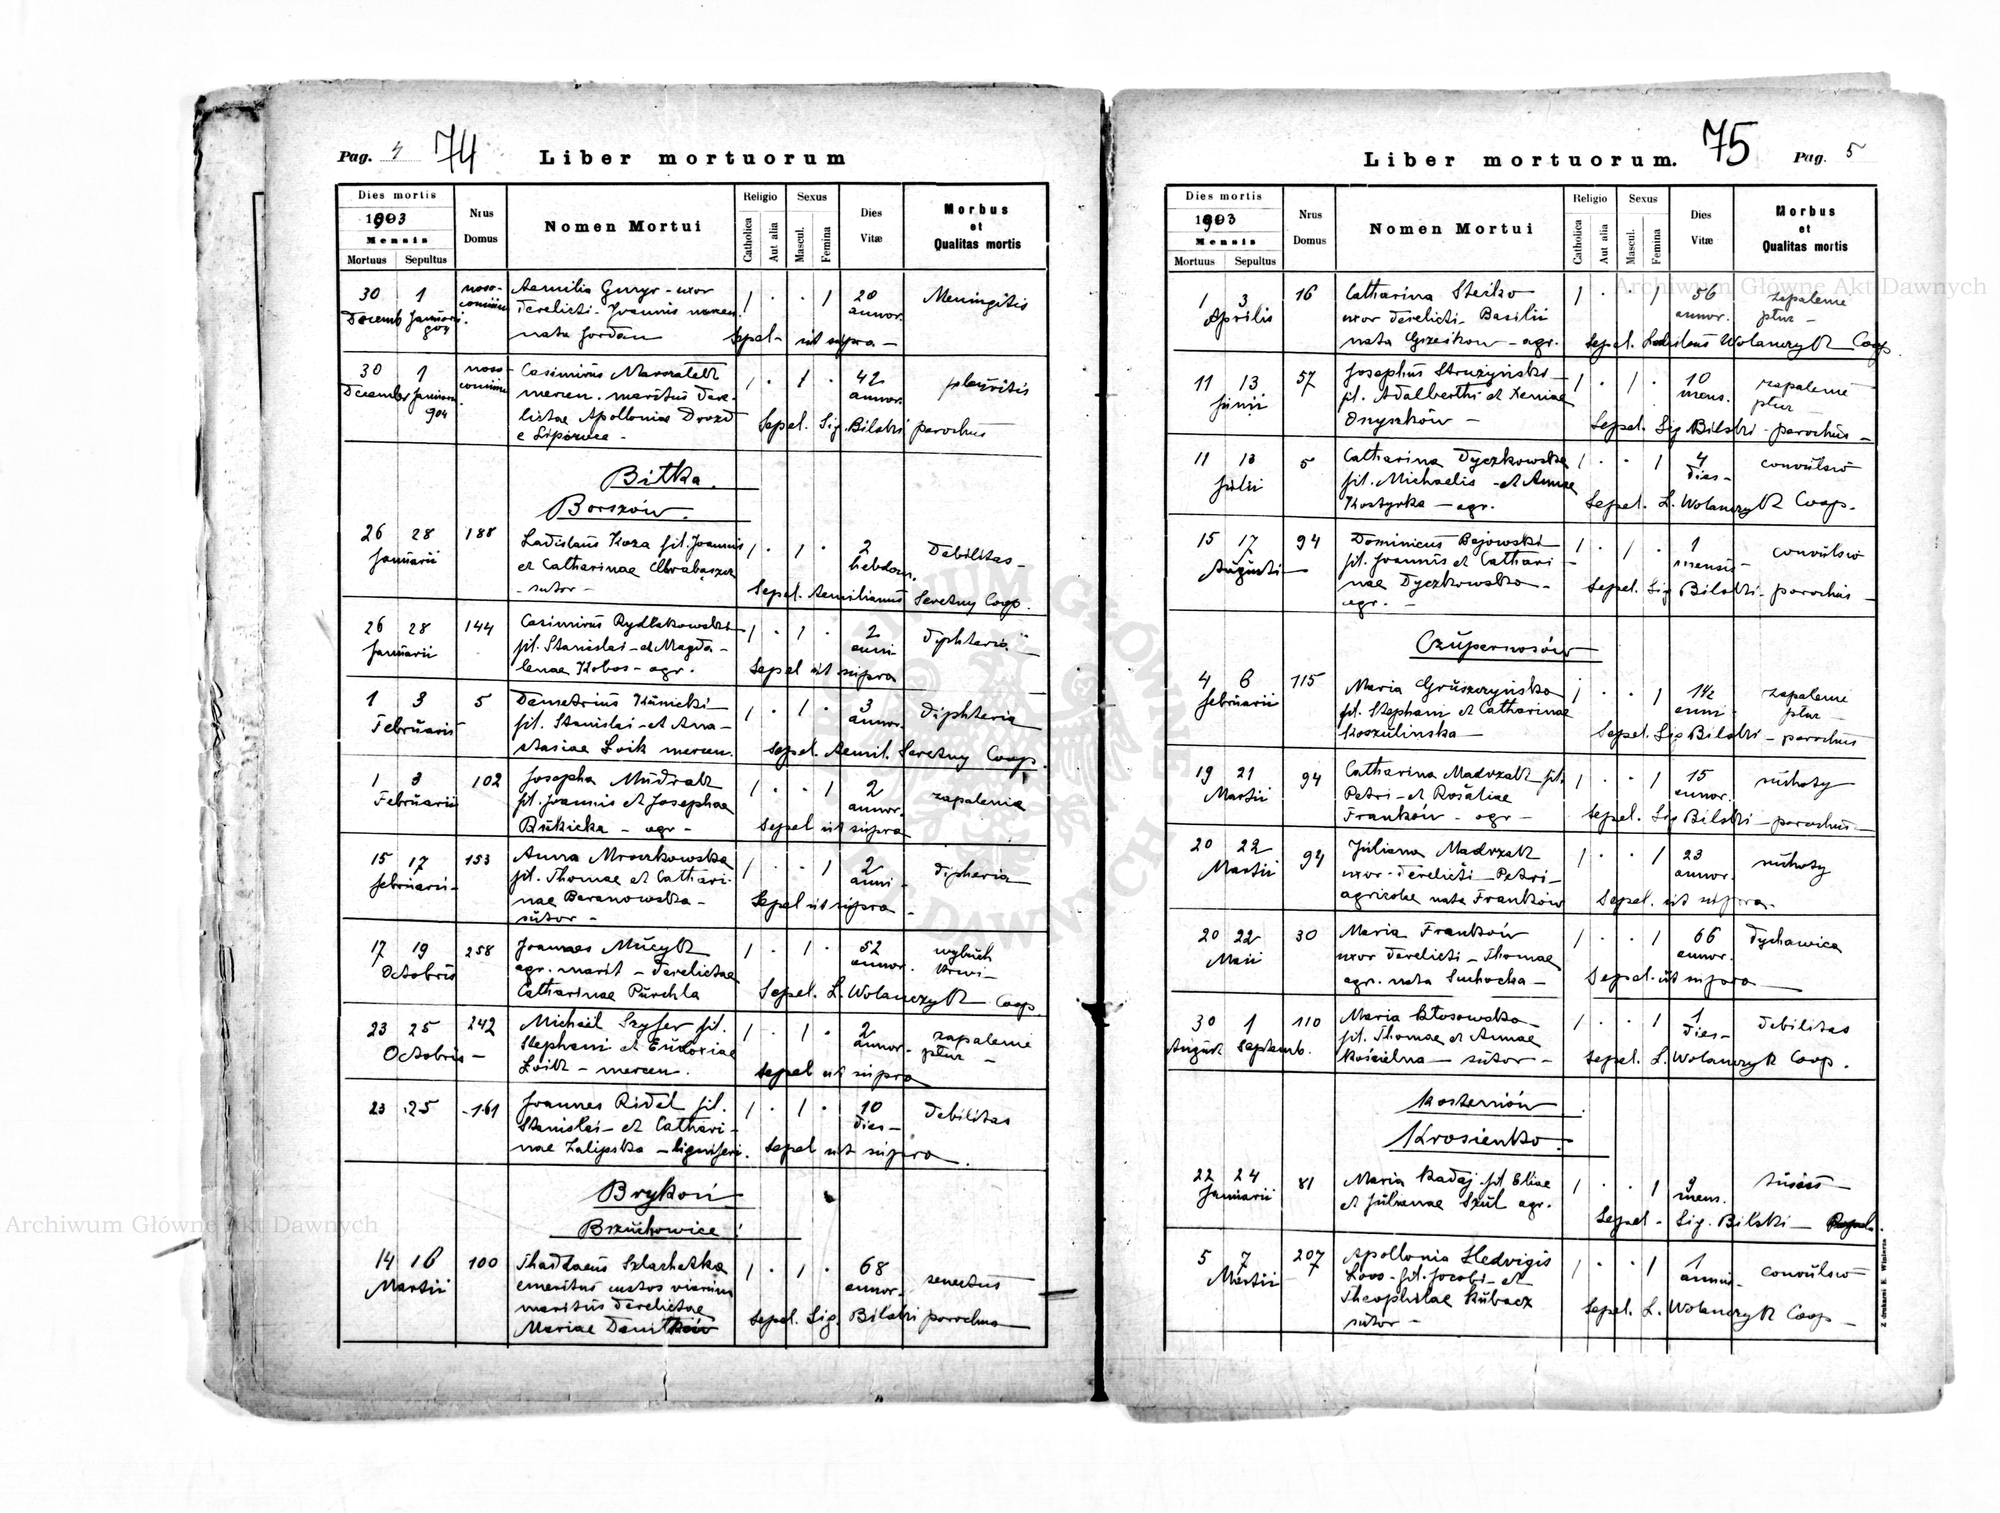 Pag. 4 74 Liber mortuorum
Dies mortis
1903
Mensis
Mortuus Sepultus
Nrus Domus
Nomen Mortui
Religio
Catholica Aut alia
Sexus
Mascul. Femina
Dies Vitæ
Morbus et Qualitas mortis
30 1 noso- Aemilia Gmyr - uxor 1 . . 1 20 Meningitis
Decemb Januarii comium derelicti Joannis mercen. annor.
904 nata Jordan Sepel. ut supra
30 1 noso- Casimirus Marszałek 1 . 1 . 42 pleuritis
December Januarii comium mercen. maritus dere- annor.
904 lictae Apolloniae Drozd Sepel. Sig. Bilski parochus
e Lipowce -
Bitka.
Borszów.
26 28 188 Ladislaus Koza fil. Joannis 1 . 1 . 2 Debilitas -
Januarii et Catharinae hebdom.
- sutor - Sepel. Aemilianus Seretny Coop.
26 28 144 Casimirus Rydlakowski 1 . 1 . 2 Diphteria
Januarii fil. Stanislai - et Magda- anni
lenae Kobos - agr. Sepel ut supra
1 3 5 Demetrius Kunicki 1 . 1 . 3 Diphteria
Februarii fil. Stanislai - et Ana- annor.
stasiae Łoik mercen. Sepel. Aemil. Seretny Coop.
1 3 102 Josepha Mudrak 1 . . 1 2 zapalenie
Februarii fil. Joannis et Josephae annor.
Bukicka - agr - Sepel ut supra
15 17 153 Anna Mroczkowska 1 . . 1 2 dipheria
februarii - fil. Thomae et Cathari- anni -
nae Baranowska - Sepel ut supra -
sutor -
17 19 258 Joannes Mucyk 1 . 1 . 52 wybuch
Octobris agr. marit - derelictae annor. krwi -
Catharinae Purchla Sepel. L. Wolanczyk Coop
23 25 242 Michaël Szyfer fil. 1 . 1 . 2 zapalenie
Octobris - Stephani et Eudoxiae annor. płuc -
Łoik - mercen. Sepel ut supra
23 25 161 Joannes Ridel fil. 1 . 1 . 10 debilitas
Stanislai - et Cathari- dies -
nae Zalipska - lignifteri. Sepel ut supra.
Brykoń
Brzuchowice!
14 16 100 Thaddaeus Szlachetka 1 . 1 . 68 senectus
Martii emeritus custos viarum annor.
maritus derelictae Sepel. Sig. Bilski parochus
Mariae
Liber mortuorum. 75 Pag. 5
Dies mortis
1903
Mensis
Mortuus Sepultus
Nrus Domus
Nomen Mortui
Religio
Catholica Aut alia
Sexus
Mascul. Femina
Dies Vitæ
Morbus et Qualitas mortis
1 3 16 Catharina Stecko 1 . . 1 56 zapalenie
Aprilis uxor derelicti Basilii annor. płuc -
nata Grześkow - agr. Sepel. Ladislaus Wolanczyk Coop
11 13 57 Josephus Strużyński 1 . 1 . 10 zapalenie
Junii fil. Adalberthi et Xeniae mens. płuc
Onyszków - Sepel. Sig Bilski - parochus -
11 13 5 Catharina Dyczkowska 1 . . 1 4 convulsio
Julii fil. Michaelis - et Annae dies -
Kostyrka - agr. Sepel. L. Wolanczyk Coop.
15 17 94 Dominicus Bajowski 1 . 1 . 1 convulsio
Augusti fil. Joannis et Cathari- mensis -
nae Dyczkowska - Sepel. Sig Bilski - parochus -
agr. -
Czupernosów
4 6 115 Maria Gruszczyńska 1 . . 1 1½ zapalenie
februarii fil. Stephani et Catharinae anni - płuc -
Koszulinska - Sepel. Sig Bilski - parochus
19 21 94 Catharina Madrzak fil. 1 . . 1 15 suchoty
Martii Petri - et Rosaliae annor.
Franków - agr - Sepel. Sig Bilski - parochus -
20 22 94 Juliana Madrzak 1 . . 1 23 suchoty
Martii uxor derelicti - Petri - annor.
agricolae nata Franków Sepel. ut supra.
20 22 30 Maria Franków 1 . . 1 66 dychawica
Maii uxor derelicti - Thomae annor.
agr. nata Suchocka - Sepel. ut supra
30 1 110 Maria Kłosowska - 1 . . 1 1 debilitas
August Septemb. fil. Thomae et Annae dies -
Kościelna - sutor - Sepel. L. Wolanczyk Coop.
Kosteniów
Krosienko.
22 24 81 Maria Kadaj fil Eliae 1 . . 1 9
Januarii et Julianae Szul agr. mens.
Sepel - Sig. Bilski -
5 7 207 Apollonia Hedvigis 1 . . 1 1 convulsio
Martii 7 Łoos - fil. Jacobi - et anni -
Theophilae Kubacz Sepel. L. Wolanczyk Coop -
sutor -
Z drukarni E. Winiarza
Archiwum Główne Akt Dawnych
Archiwum Główne Akt Dawnych
ARCHIWUM GŁÓWNE AKT DAWNYCH